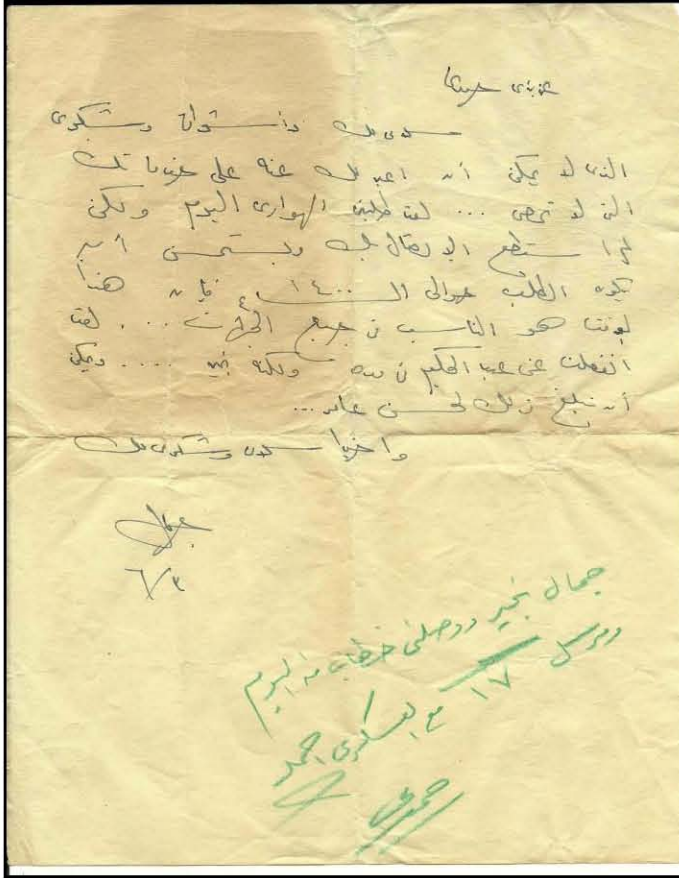 عزيزى حمدى
سلامى لك وأشواقى وشكرى
الذى لا يمكن أن أعبر لك عنه على خدماتك
التى لا تحصى ... لقد طلبت الهوارى اليوم ولكن
لم أستطع الاتصال بك ويستحسن أن
يكون الطلب حوالى الـ ١٤٠٠ فإن هذا
الوقت هو المناسب من جميع الجهات ... لقد
انفصلت عن عبد الحكيم من مدة ولكنه بخير .... ويمكن
أن تبلغ ذلك لحسن عامر ...
وأخيرا سلامى وشكرى لك
جمال
٦/٣
جمال بخير ووصلنى خطاب منه اليوم
ومرسل ١٧ مع العسكرى أحمد
حمدى